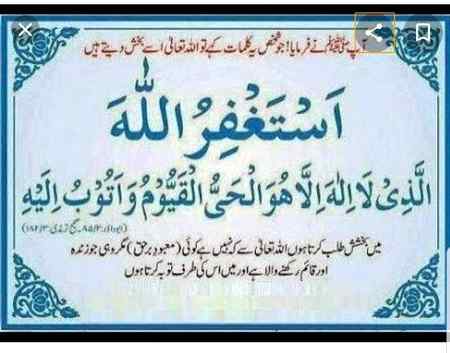 آپ ﷺ نے فرمایا! جو شخص یہ کلمات کہے تو اللہ تعالیٰ اسے بخش دیتے ہیں
اَسْتَغْفِرُ اللّٰهَ
الَّذِیْ لَا اِلٰهَ اِلَّا هُوَ الْحَیُّ الْقَیُّوْمُ وَاَتُوْبُ اِلَیْهِ
میں بخشش طلب کرتا ہوں اللہ تعالیٰ سے کہ نہیں ہے کوئی (معبودِ برحق) مگر وہی جو زندہ
اور قائم رکھنے والا ہے اور میں اس کی طرف توبہ کرتا ہوں